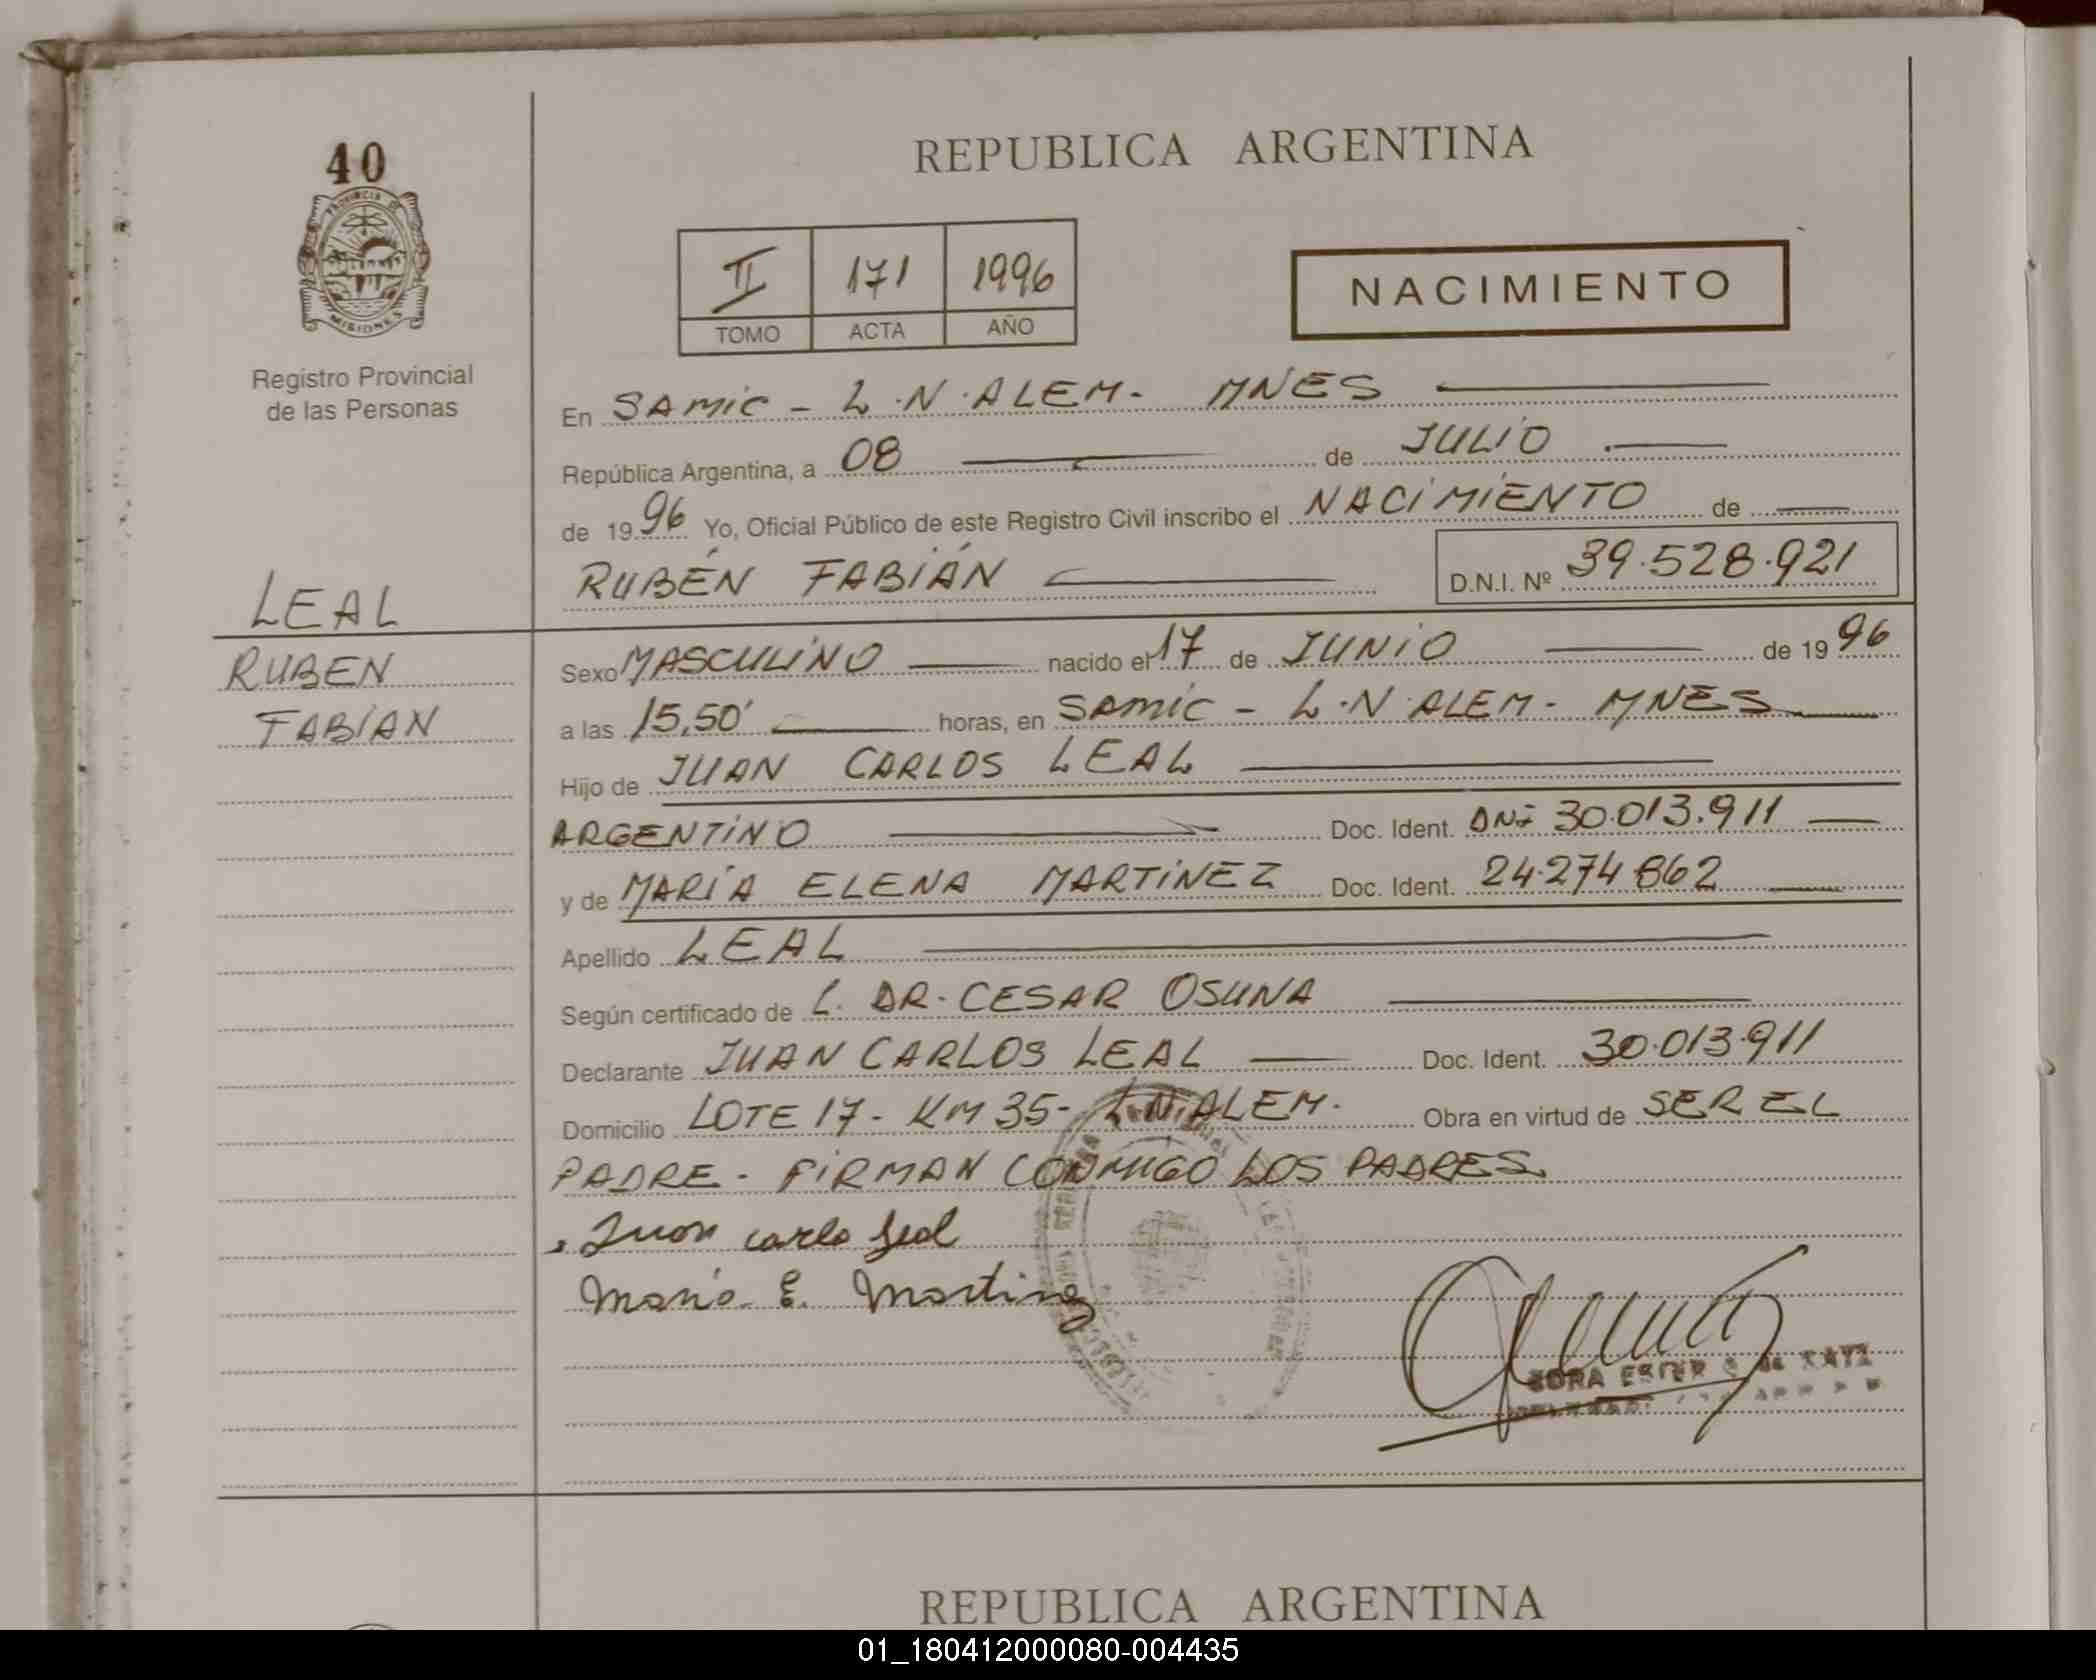 40
PROVINCIA DE
MISIONES
Registro Provincial
de las Personas
REPUBLICA ARGENTINA
II 171 1996
TOMO ACTA AÑO
NACIMIENTO
En SAMIC - L.N.ALEM- MNES
República Argentina, a 08 de JULIO
de 1996 Yo, Oficial Público de este Registro Civil inscribo el NACIMIENTO de
RUBÉN FABIÁN D.N.I. Nº 39.528.921
LEAL
RUBEN
FABIAN
Sexo MASCULINO nacido el 17 de JUNIO de 1996
a las 15,50' horas, en SAMIC - L.N ALEM- MNES
Hijo de JUAN CARLOS LEAL
ARGENTINO Doc. Ident. DNI 30.013.911
y de MARÍA ELENA MARTINEZ Doc. Ident. 24.274.862
Apellido LEAL
Según certificado de L. DR. CESAR OSUNA
Declarante JUAN CARLOS LEAL Doc. Ident. 30.013.911
Domicilio LOTE 17- KM 35- L.N.ALEM. Obra en virtud de SER EL
PADRE - FIRMAN CONMIGO LOS PADRES.
Juan carlo Leal
Maria E. Martinez
REPUBLICA ARGENTINA
01_180412000080-004435